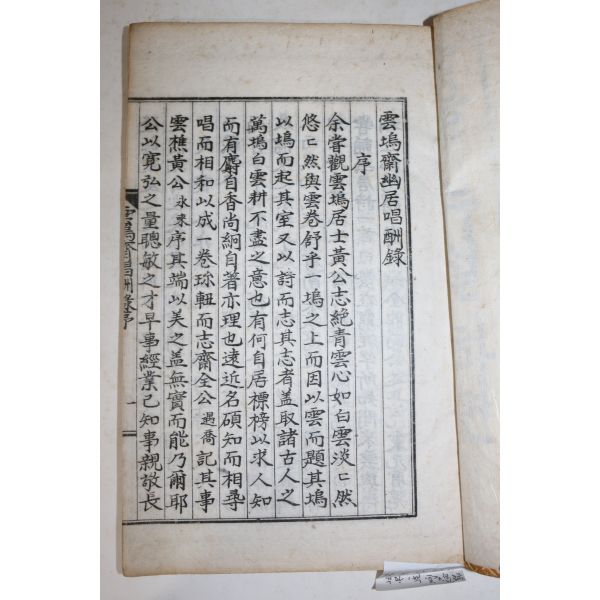 雲塢齋幽居唱酬錄
序
余嘗觀雲塢居士黃公志絶青雲心如白雲淡〻然
悠〻然與雲卷舒乎一塢之上而因以雲而題其塢
以塢而起其室又以詩而志其志者盖取諸古人之
萬塢白雲耕不盡之意也有何自居標榜以求人知
而有麝自香尚絅自著亦理也遠近名碩知而相尋
唱而相和以成一卷珎軸而志齋全公遇喬記其事
雲樵黃公永來序其端以美之盖無實而能乃爾耶
公以寛弘之量聰敏之才早事經業已知事親敬長